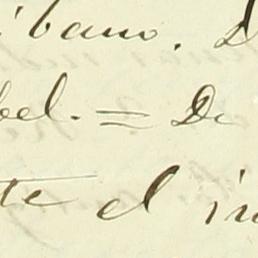 bano. D
bel. = De
te el in